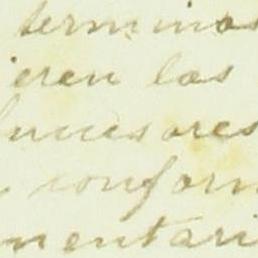 terminos
ieren las
sucesores
conform
mentari